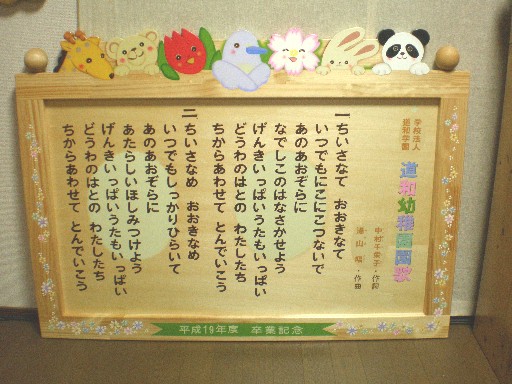 学校法人
道和学園
道和幼稚園園歌
中村千栄子・作詞
湯山昭・作曲
一 ちいさなて おおきなて
いつでもにこにこつないで
あのあおぞらに
なでしこのはなさかせよう
げんきいっぱいうたもいっぱい
どうわのはとの わたしたち
ちからあわせて とんでいこう
二 ちいさなめ おおきなめ
いつでもしっかりひらいて
あのあおぞらに
あたらしいほしみつけよう
げんきいっぱいうたもいっぱい
どうわのはとの わたしたち
ちからあわせて とんでいこう
平成19年度 卒業記念